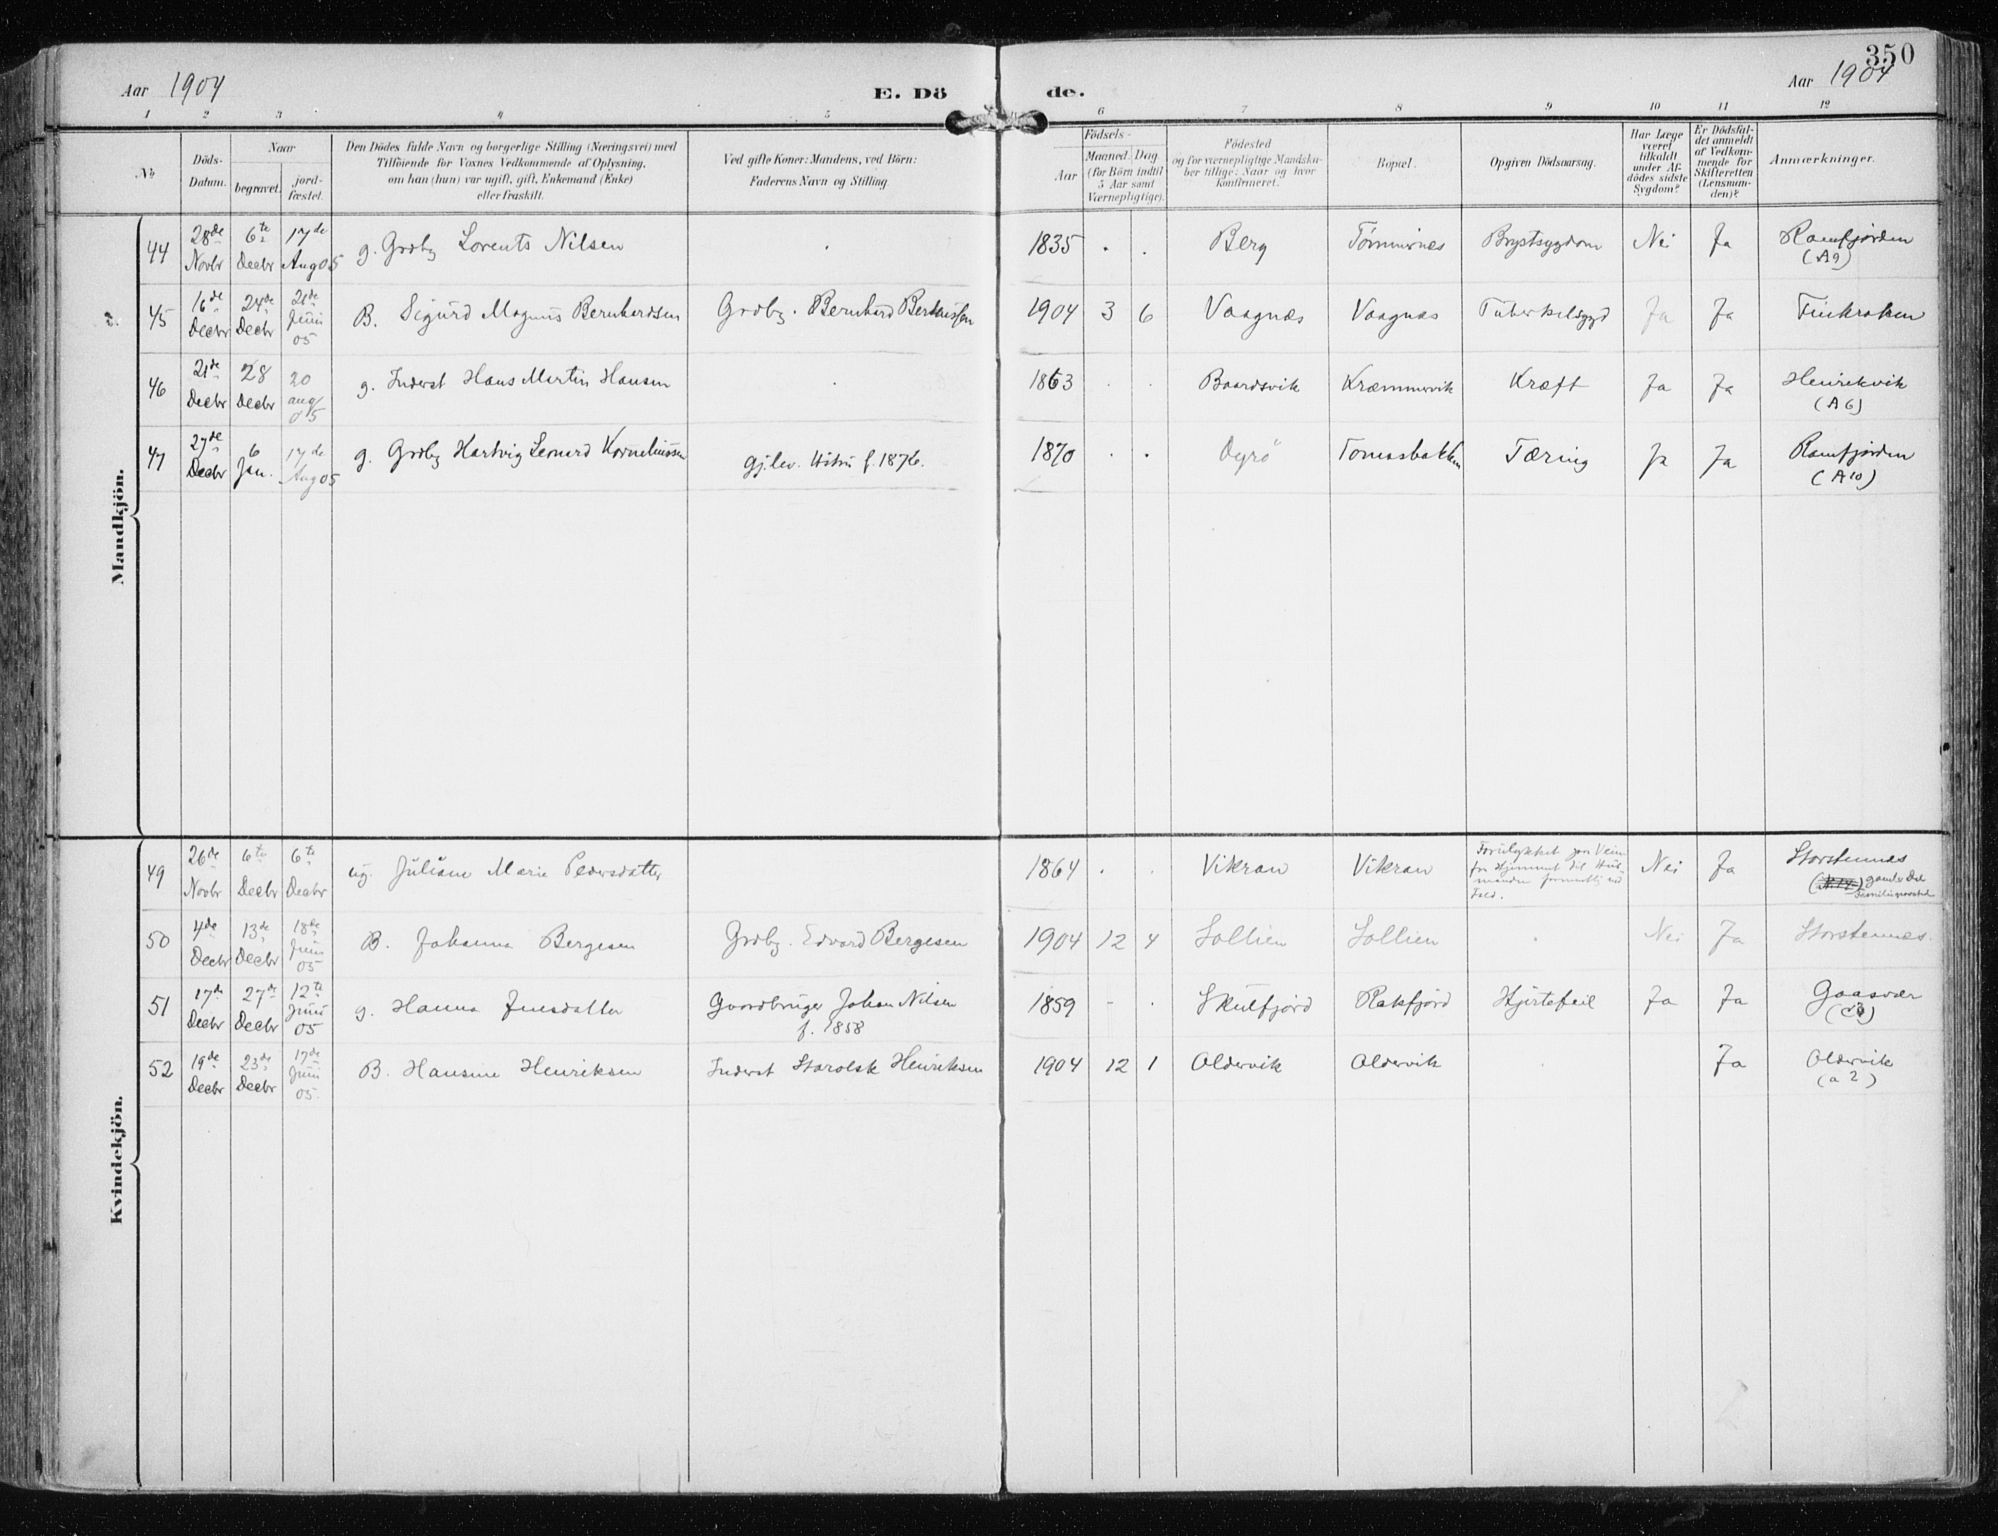 350
Aar 1904
E. Dö
de.
Aar 1904
1 2 3 4 5 6 7 8 9 10 11 12
No
Döds-
Datum.
Naar
begravet.
jord-
fæstet.
Den Dödes fulde Navn og borgerlige Stilling (Næringsvei) med
Tilföiende for Voxnes Vedkommende af Oplysning,
om han (hun) var ugift, gift, Enkemand (Enke)
eller fraskilt.
Ved gifte Koner: Mandens, ved Börn:
Faderens Navn og Stilling.
Födsels-
Aar
Maaned. Dag.
(for Börn indtil
5 Aar samt
Værnepligtige).
Födested
og for værnepligtige Mandska-
ber tillige: Naar og hvor
konfirmeret.
Bopæl.
Opgiven Dödsaarsag.
Har Læge
været
tilkaldt
under Af-
dödes sidste
Sygdom?
Er Dödsfal-
det anmeldt
af Vedkom-
mende for
Skifteretten
(Lensman-
den)?
Anmærkninger.
Mandkjön.
44 28de Novbr 6te Decbr 17de Aug 05 g. Grdbr Lorents Nilsen 1835 . . Berg Tømmernes Brystsygdom Nei Ja Ramfjorden (A9)
45 16de Decbr 24de Decbr 21de Juni 05 B. Sigurd Magnus Bernhardsen Grdbr. Bernhard 1904 3 6 Vaagnæs Vaagnæs Tuberkelsygd Ja Ja Finkroken
46 21de Decbr 28 Decbr 20 aug 05 g. Inderst Hans Martin Hansen 1863 . . Baardsvik Kræmmervik Kræft Ja Ja Henrikvik (A6)
47 27de Decbr 6 Jan. 17de Aug 05 g. Grdbr Hartvig Leonard Korneliussen Gjlev. Hustru f. 1876. 1870 . . Dyrø Tomasbakken Tæring Ja Ja Ramfjorden (A10)
Kvindekjön.
49 26de Novbr 6te Decbr 6te Decbr ug. Juliane Marie Pedersdatter 1864 . . Vikran Vikran Forulykket paa Vein fra Hjemmet til Nei Ja Storstennes gamle Del
50 4de Decbr 13de Decbr 18de Juni 05 B. Johanna Bergesen Grdbr. Edvard Bergesen 1904 12 4 Sollien Sollien . Nei Ja Storstennes.
51 17de Decbr 27de Decbr 12te Juni 05 g. Hanna Jensdatter Gaardbruger Johan Nilsen f. 1858 1859 - . Skulfjord Rakfjord Hjertefeil Ja Ja Gaasvær (C3)
52 19de Decbr 23de Decbr 17de Juni 05. B. Hansine Henriksen Inderst Henriksen 1904 12 1 Oldervik Oldervik Ja Oldervik (a 2)